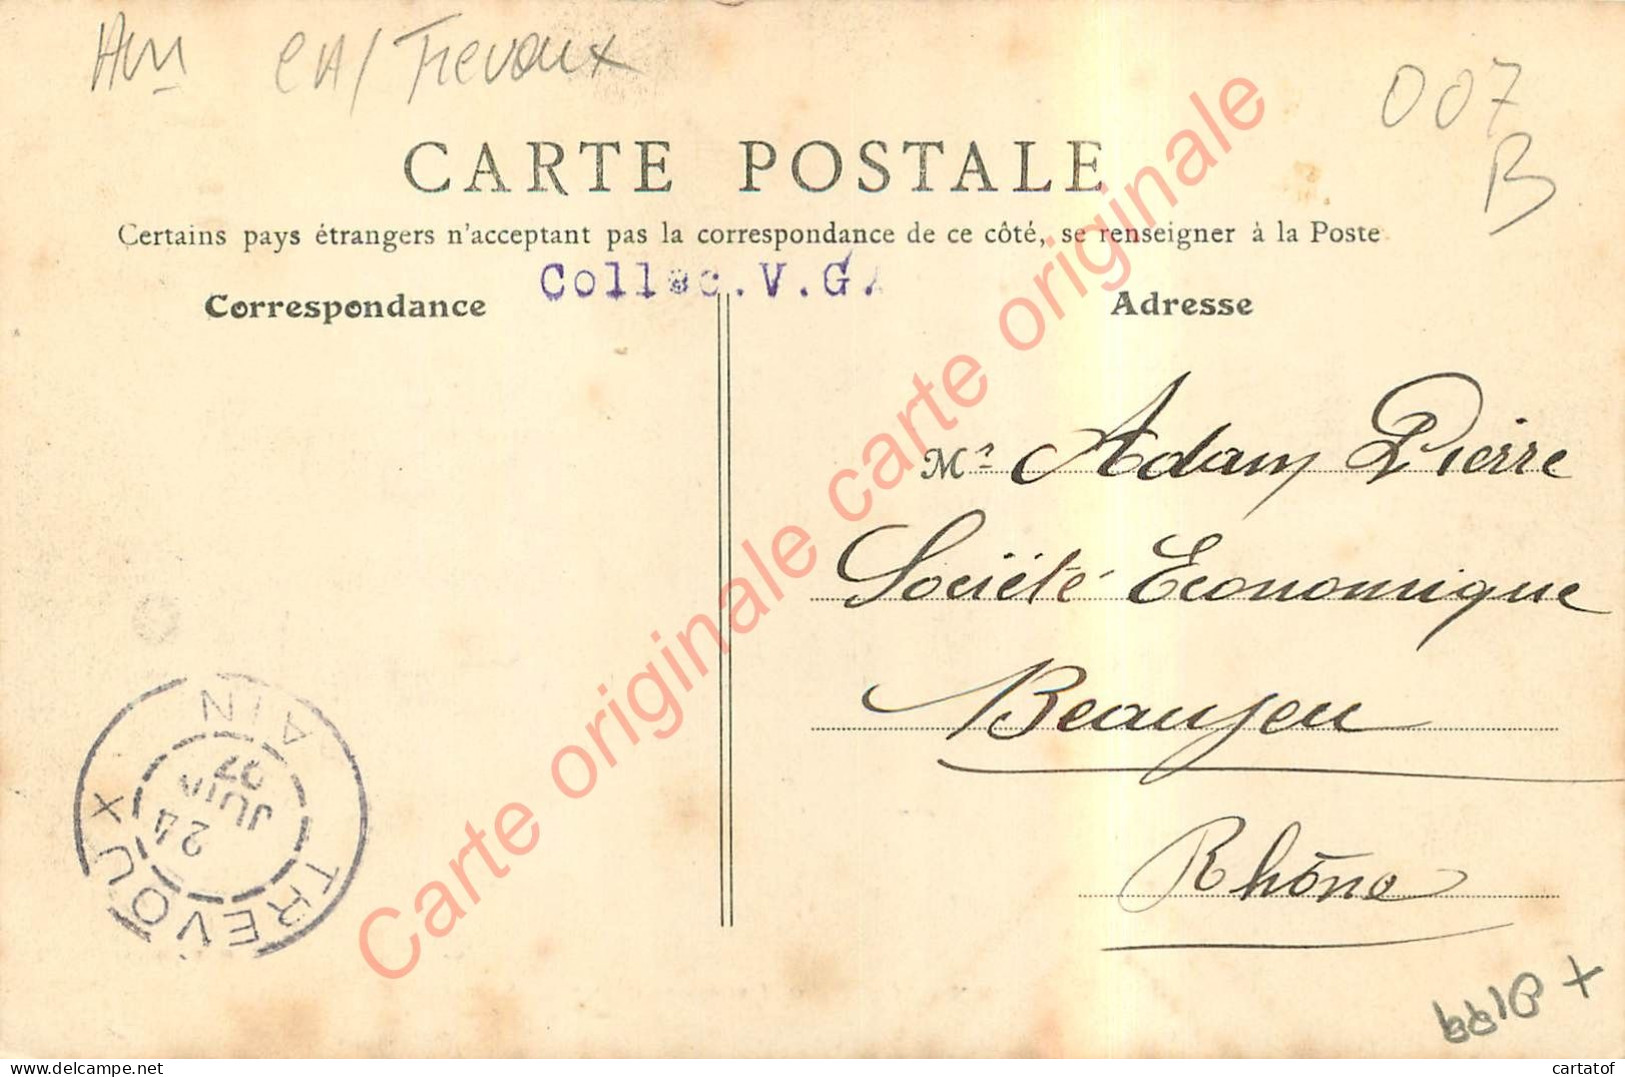 Ain CA/Trevoux
007
B
CARTE POSTALE
Certains pays étrangers n'acceptant pas la correspondance de ce côté, se renseigner à la Poste
Collec.V.G.
Correspondance
Adresse
Mr Adam Pierre
Société Economique
Beaujeu
Rhône
TREVOUX
AIN
24
JUIN
07
Carte originale carte originale carte originale
delcampe.net
cartatof